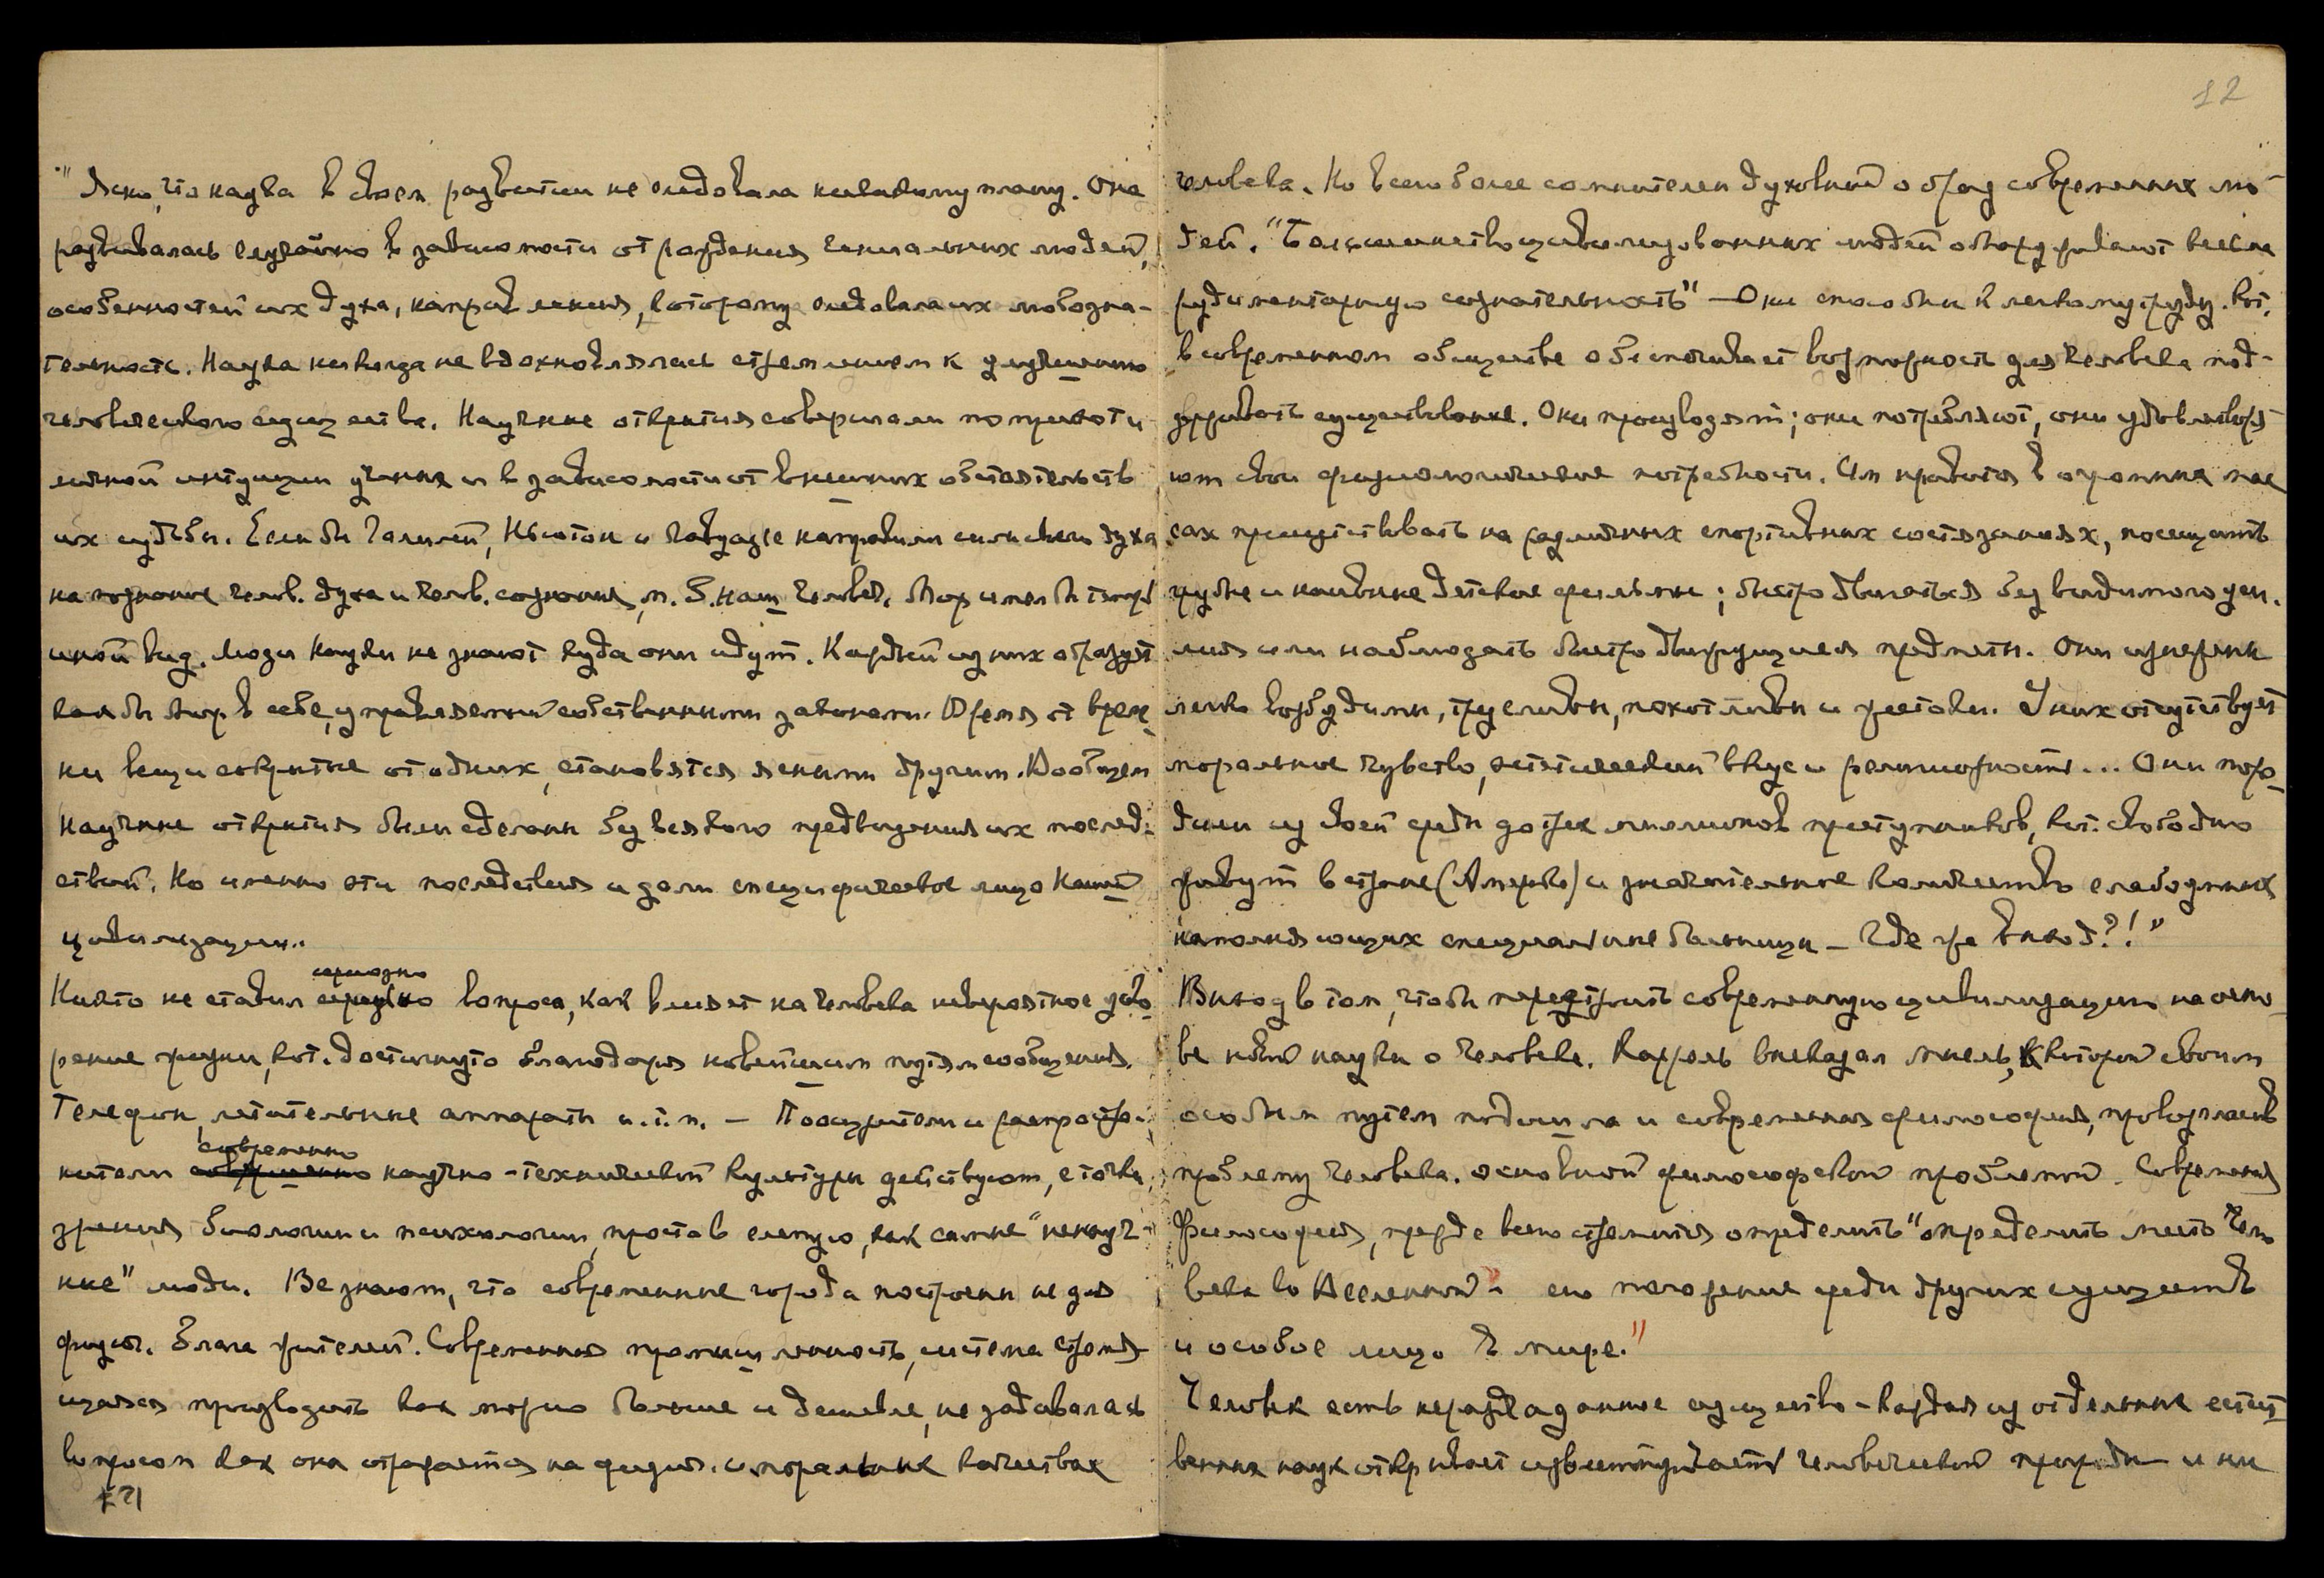 "Ясно, что наука в своем развитии не следовала никакому плану. Она
развивалась случайно в зависимости от рождения гениальных людей,
особенностей их духа, направления, которому следовала их любозна-
тельность. Наука никогда не вдохновлялась стремлением к улучшению
человеческого существа. Научные открытия совершали по прихоти
личной интуиции ученых и в зависимости от внешних обстоятельств
их судьбы. Если бы Галилей, Ньютон и Лавуазье направили силы своего духа
на познание челов. духа и челов. сознания, м. б. наш человеч. мир имел бы теперь
иной вид. Люди науки не знают куда они идут. Каждый из них образует
как бы мир в себе, управляемый собственными законами. Время от време-
ни вещи сокрытые от одних, становятся ясными другим. Вообщем
научные открытия были сделаны без всякого предвидения их послед-
ствий. Но именно эти последствия и дали специфическое лицо нашей
цивилизации."
Никто не ставил серьезно вопроса, как влияет на человека невероятное уско-
рение жизни, кот. достигнуто благодаря новейшим путям сообщения.
Телефон, летательные аппараты и.т.п. – Поощрители и распростра-
нители современно научно-технической культуры действуют, с точки
зрения биологии и психологии, просто в слепую, как самые "ненауч-
ные" люди. Все знают, что современные города построены не для
физич. блага жителей. Современная промышленность, система стремя-
щаяся производить как можно больше и дешевле, не задавалась
вопросом как она отражается на физич. и моральных качествах
12
человека. Но всего более сомнителен духовный образ современных лю-
дей. "Большинство цивилизованных людей обнаруживают весьма
рудиментарную сознательность" – Они способны к легкому труду. кот.
в современном обществе обеспечивает возможность для человека под-
держивать существование. Они производят; они потребляют, они удовлетворя-
ют свои физиологические потребности. Им нравится в огромных мас-
сах присутствовать на различных спортивных состязаниях, посещать
грубые и наивные детские фильмы; быстро двигаться без видимого уси-
лия или наблюдать быстро движущиеся предметы. Они изнежены
легко возбудимы, трусливы, похотливы и жестоки. У них отсутствует
моральное чувство, эстетический вкус и религиозность... Они поро-
дили из своей среды до трех миллионов преступников, кот. свободно
живут в стране (Америке) и значительное количество слабоумных
наполняющих специальные больницы – Где же выход?!"
Выход в том, чтобы перестроить современную цивилизацию на осно-
ве новой науки о человеке. Каррель высказал мысль, к которой своим
особым путем подошла и современная философия, провозгласив
проблему человека. основной философской проблемой. Современная
философия, прежде всего стремится определить "определить место чело
века во Вселенной" его положение среди других существ
и особое лицо в мире."
Человек есть неразгаданное существо – каждая из отдельных естест-
венных наук открывает известную часть человеческой природы и ни